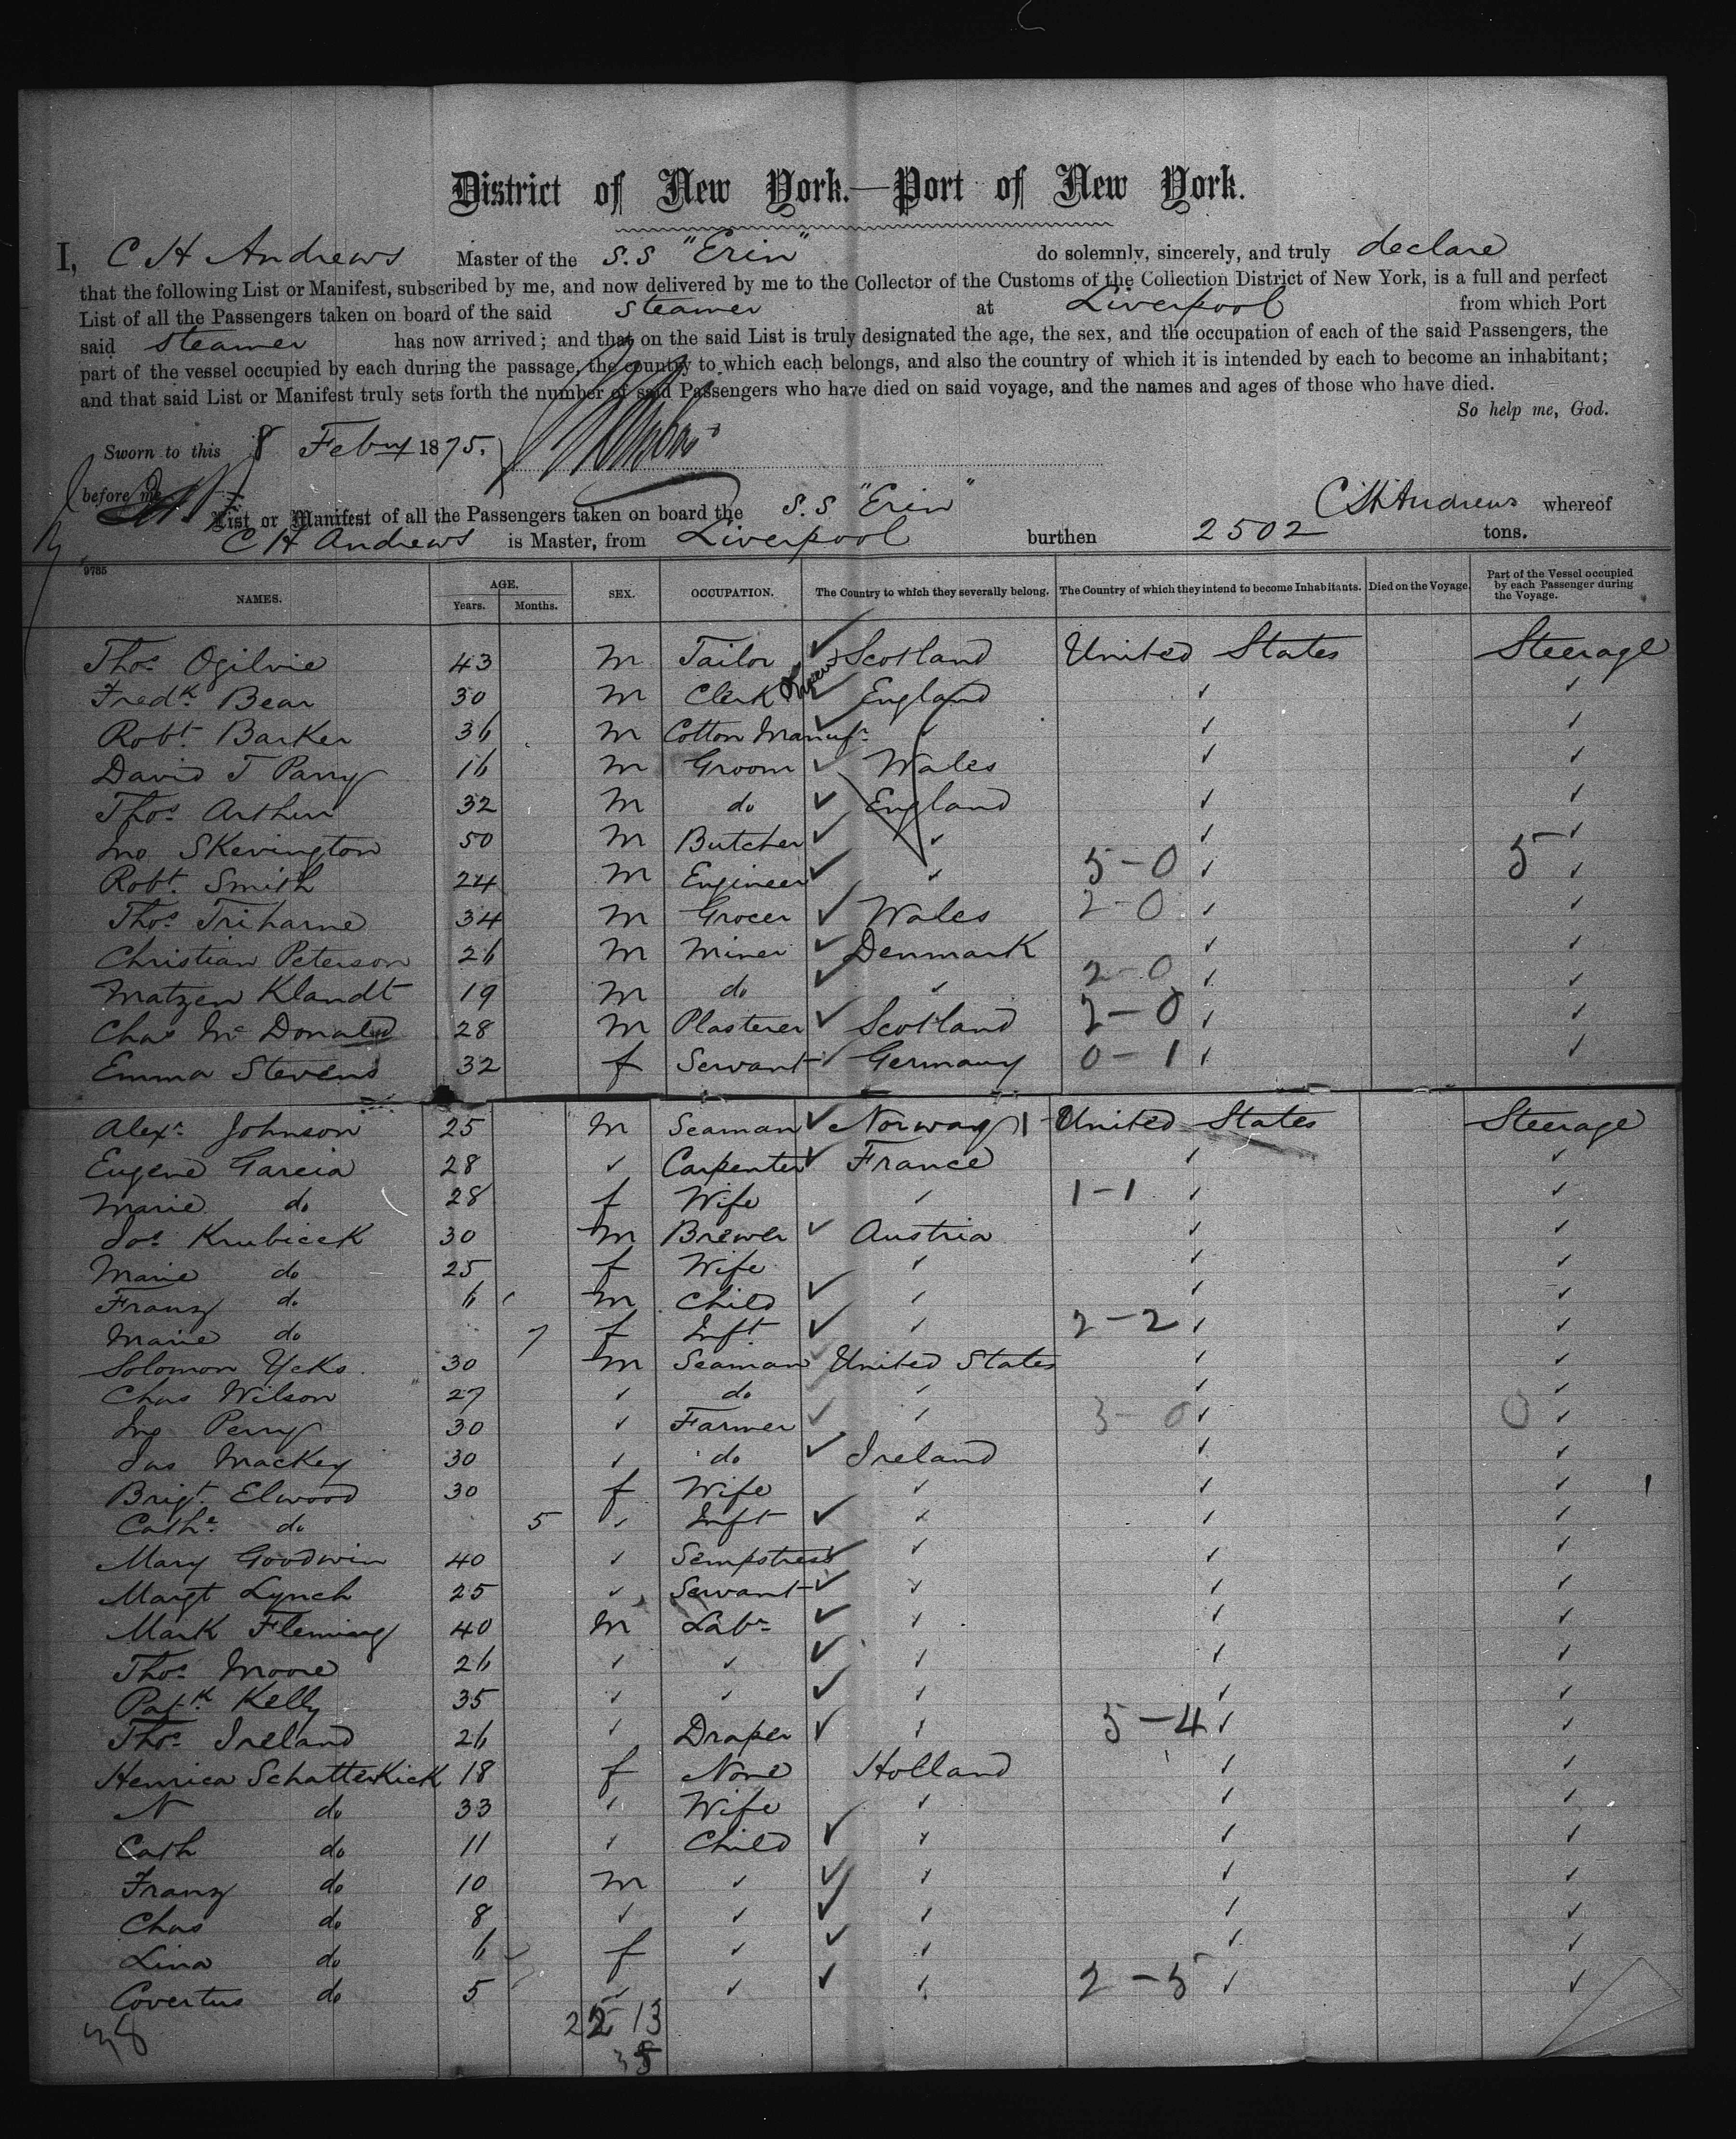 District of New York.—Port of New York.
I, C H Andrews Master of the S.S "Erin" do solemnly, sincerely, and truly declare
that the following List or Manifest, subscribed by me, and now delivered by me to the Collector of the Customs of the Collection District of New York, is a full and perfect
List of all the Passengers taken on board of the said Steamer at Liverpool from which Port
said Steamer has now arrived; and that on the said List is truly designated the age, the sex, and the occupation of each of the said Passengers, the
part of the vessel occupied by each during the passage, the country to which each belongs, and also the country of which it is intended by each to become an inhabitant;
and that said List or Manifest truly sets forth the number of said Passengers who have died on said voyage, and the names and ages of those who have died.
So help me, God.
Sworn to this 8 Feby 1875.
before me
C H Andrews
List or Manifest of all the Passengers taken on board the S.S "Erin" whereof
C H Andrews is Master, from Liverpool burthen 2502 tons.
9785
NAMES. AGE. Years. Months. SEX. OCCUPATION. The Country to which they severally belong. The Country of which they intend to become Inhabitants. Died on the Voyage. Part of the Vessel occupied by each Passenger during the Voyage.
Thos. Ogilvie 43 M Tailor ✓ Scotland United States Steerage
Fredk. Bear 30 M Clerk ✓ England ✓ ✓
Robt. Barker 36 M Cotton Manufr. ✓ ✓ ✓ ✓
David J Parry 16 M Groom ✓ Wales ✓ ✓
Thos. Arthur 32 M do ✓ England ✓ ✓
Jno Skevington 50 M Butcher ✓ ✓ ✓ ✓
Robt. Smith 24 M Engineer ✓ ✓ 5-0 ✓ 5 ✓
Thos. Triharne 34 M Grocer ✓ Wales 2-0 ✓ ✓
Christian Peterson 26 M Miner ✓ Denmark ✓ ✓
Matzen Klandt 19 M do ✓ ✓ 2-0 ✓ ✓
Chas Mc Donald 28 M Plasterer ✓ Scotland 2-0 ✓ ✓
Emma Stevens 32 f Servant ✓ Germany 0-1 ✓ ✓
Alexr. Johnson 25 M Seaman ✓ Norway 1- United States Steerage
Eugene Garcia 28 ✓ Carpenter ✓ France ✓ ✓
Marie do 28 f Wife ✓ 1-1 ✓ ✓
Jos. Krubicek 30 M Brewer ✓ Austria ✓ ✓
Marie do 25 f Wife ✓ ✓ ✓
Franz do 6 M Child ✓ ✓ ✓ ✓
Marie do 7 f Inft. ✓ ✓ 2-2 ✓ ✓
Solomon Ycks 30 M Seaman ✓ United States ✓ ✓
Chas Wilson 27 ✓ do ✓ ✓ ✓ ✓
Jno Perry 30 ✓ Farmer ✓ ✓ 3-0 ✓ 0 ✓
Jas Mackey 30 ✓ do ✓ Ireland ✓ ✓
Brigt. Elwood 30 f Wife ✓ ✓ ✓
Cathe. do 5 ✓ Inft ✓ ✓ ✓ ✓
Mary Goodwin 40 ✓ Sempstress ✓ ✓ ✓ ✓
Margt Lynch 25 ✓ Servant ✓ ✓ ✓ ✓
Mark Fleming 40 M Labr. ✓ ✓ ✓ ✓
Thos. Moore 26 ✓ ✓ ✓ ✓ ✓ ✓
Patk. Kelly 35 ✓ ✓ ✓ ✓ ✓ ✓
Thos. Ireland 26 ✓ Draper ✓ ✓ 5-4 ✓ ✓
Henrica Schatterkick 18 f None Holland ✓ ✓
N do 33 ✓ Wife ✓ ✓ ✓
Cath do 11 ✓ Child ✓ ✓ ✓ ✓
Franz do 10 M ✓ ✓ ✓ ✓ ✓
Chas do 8 ✓ ✓ ✓ ✓ ✓ ✓
Lina do 6 f ✓ ✓ ✓ ✓ ✓
Covertus do 5 ✓ ✓ ✓ ✓ 2-5 ✓ ✓
38 22 13
35